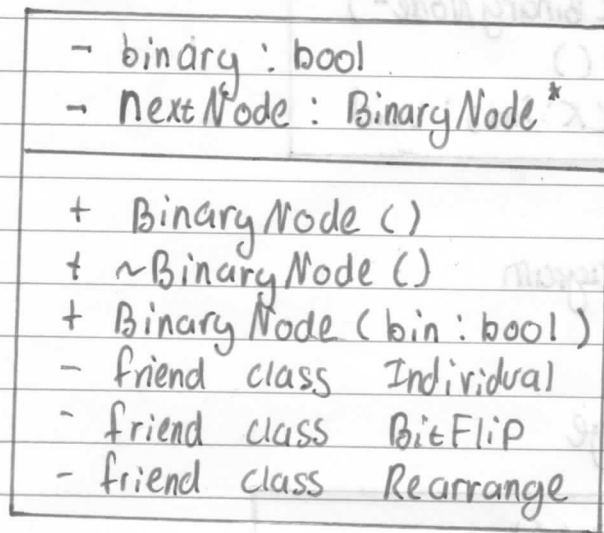 - binary : bool
- nextNode : BinaryNode*
+ BinaryNode ()
+ ~BinaryNode ()
+ BinaryNode (bin : bool)
- friend class Individual
- friend class BitFlip
- friend class Rearrange